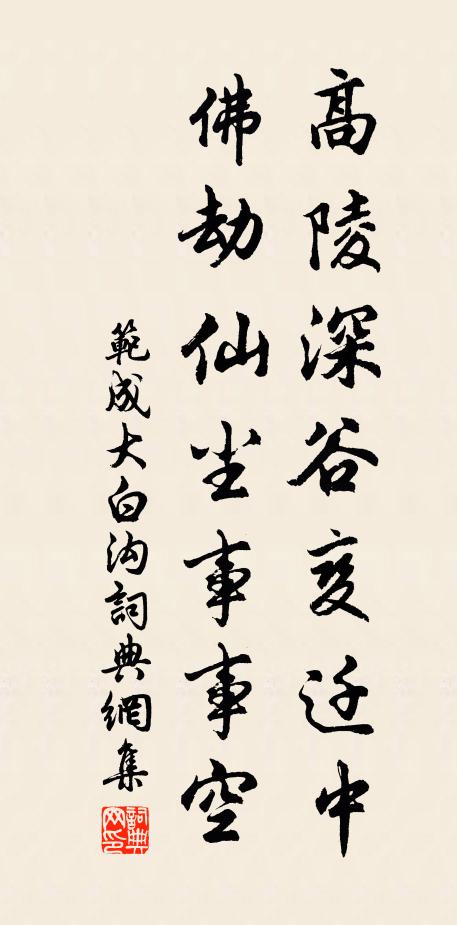 髙陵深谷变迁中
佛劫仙尘事事空
範成大白沟詞典網集
詞典网印